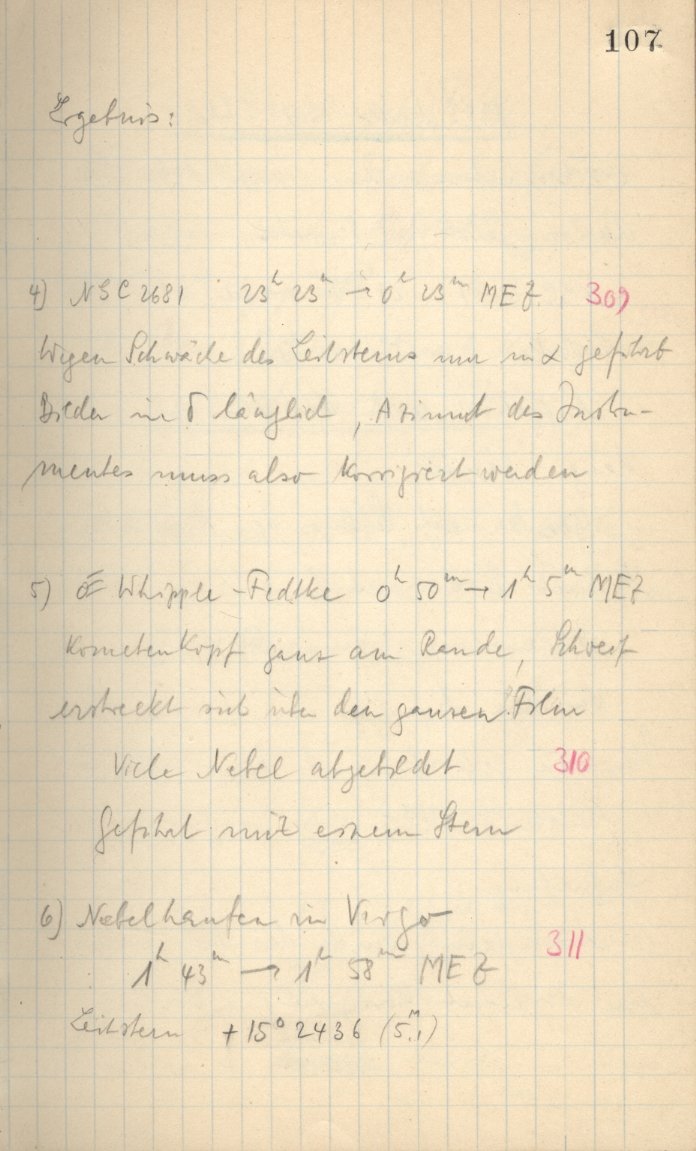 107
Ergebnis:
4) NGC 2681 23h 23m → 0h 23m MEZ. 309
Wegen Schwäche des Leitsterns nur in α geführt
Bilder in δ länglich, Azimut des Instru-
mentes muss also korrigiert werden
5) Whipple-Fedtke 0h 50m → 1h 5m MEZ
Kometenkopf ganz am Rande, Schweif
erstreckt sich über den ganzen Film
Viele Nebel abgebildet 310
Geführt mit einem Stern
6) Nebelhaufen in Virgo
311
1h 43m → 1h 58m MEZ
Leitstern +15° 2436 (5.m1)